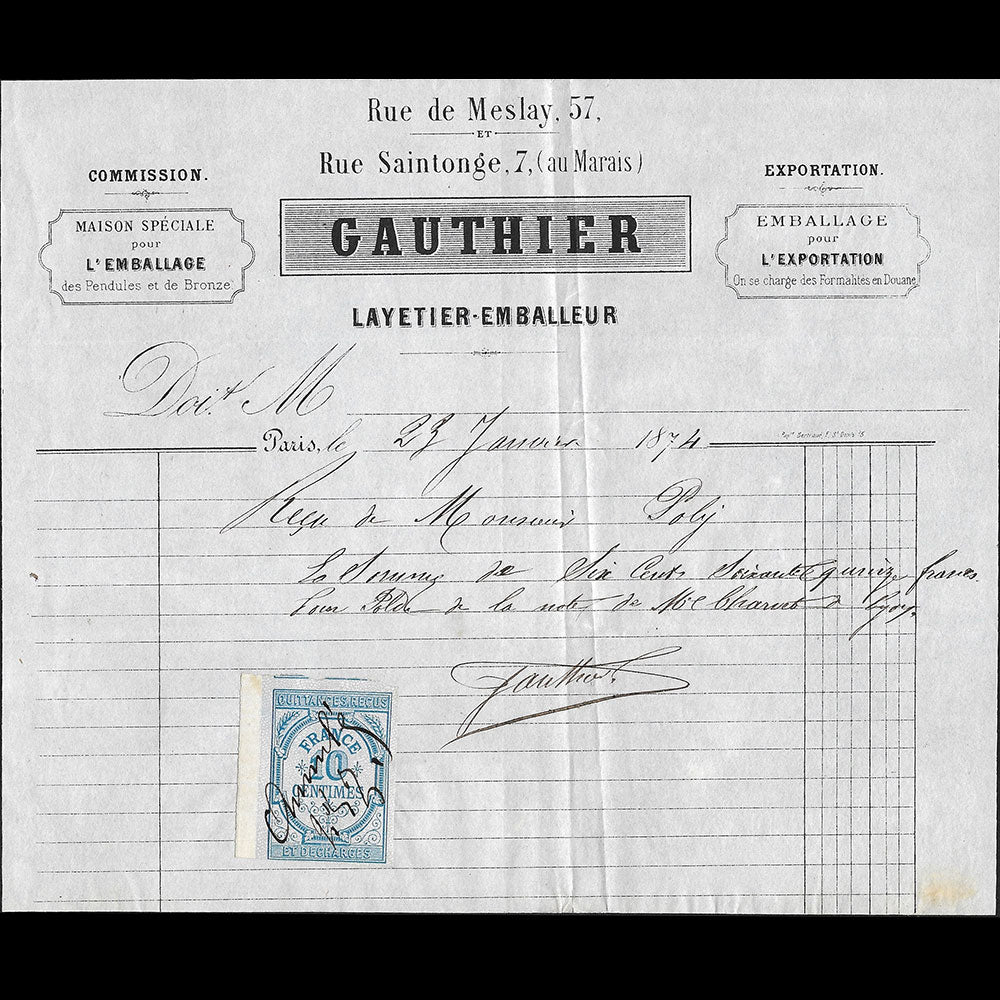 Rue de Meslay, 57,
ET
Rue Saintonge, 7, (au Marais)
COMMISSION.
EXPORTATION.
MAISON SPÉCIALE
pour
L'EMBALLAGE
des Pendules et de Bronze
GAUTHIER
EMBALLAGE
pour
L'EXPORTATION
On se charge des Formalités en Douane
LAYETIER-EMBALLEUR
Doit M
Paris, le 23 Janvier 1874
Reçu de Monsieur Poly
La Somme de Six Cents Soixante quinze francs
Pour Solde de la note de
Gauthier
QUITTANCES, REÇUS
FRANCE
10
CENTIMES
ET DÉCHARGES